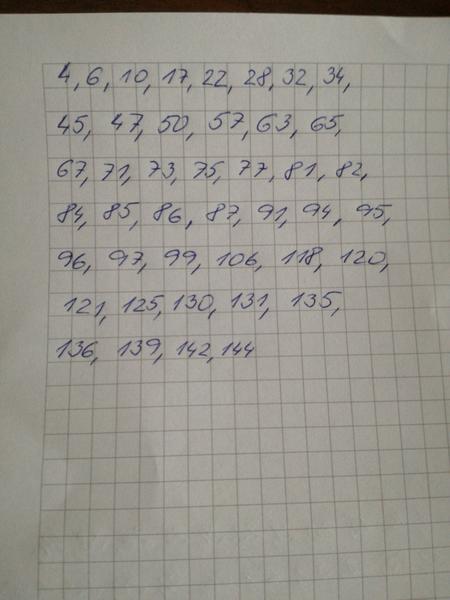 4, 6, 10, 17, 22, 28, 32, 34,
45, 47, 50, 57, 63, 65,
67, 71, 73, 75, 77, 81, 82,
84, 85, 86, 87, 91, 94, 95,
96, 97, 99, 106, 118, 120,
121, 125, 130, 131, 135,
136, 139, 142, 144